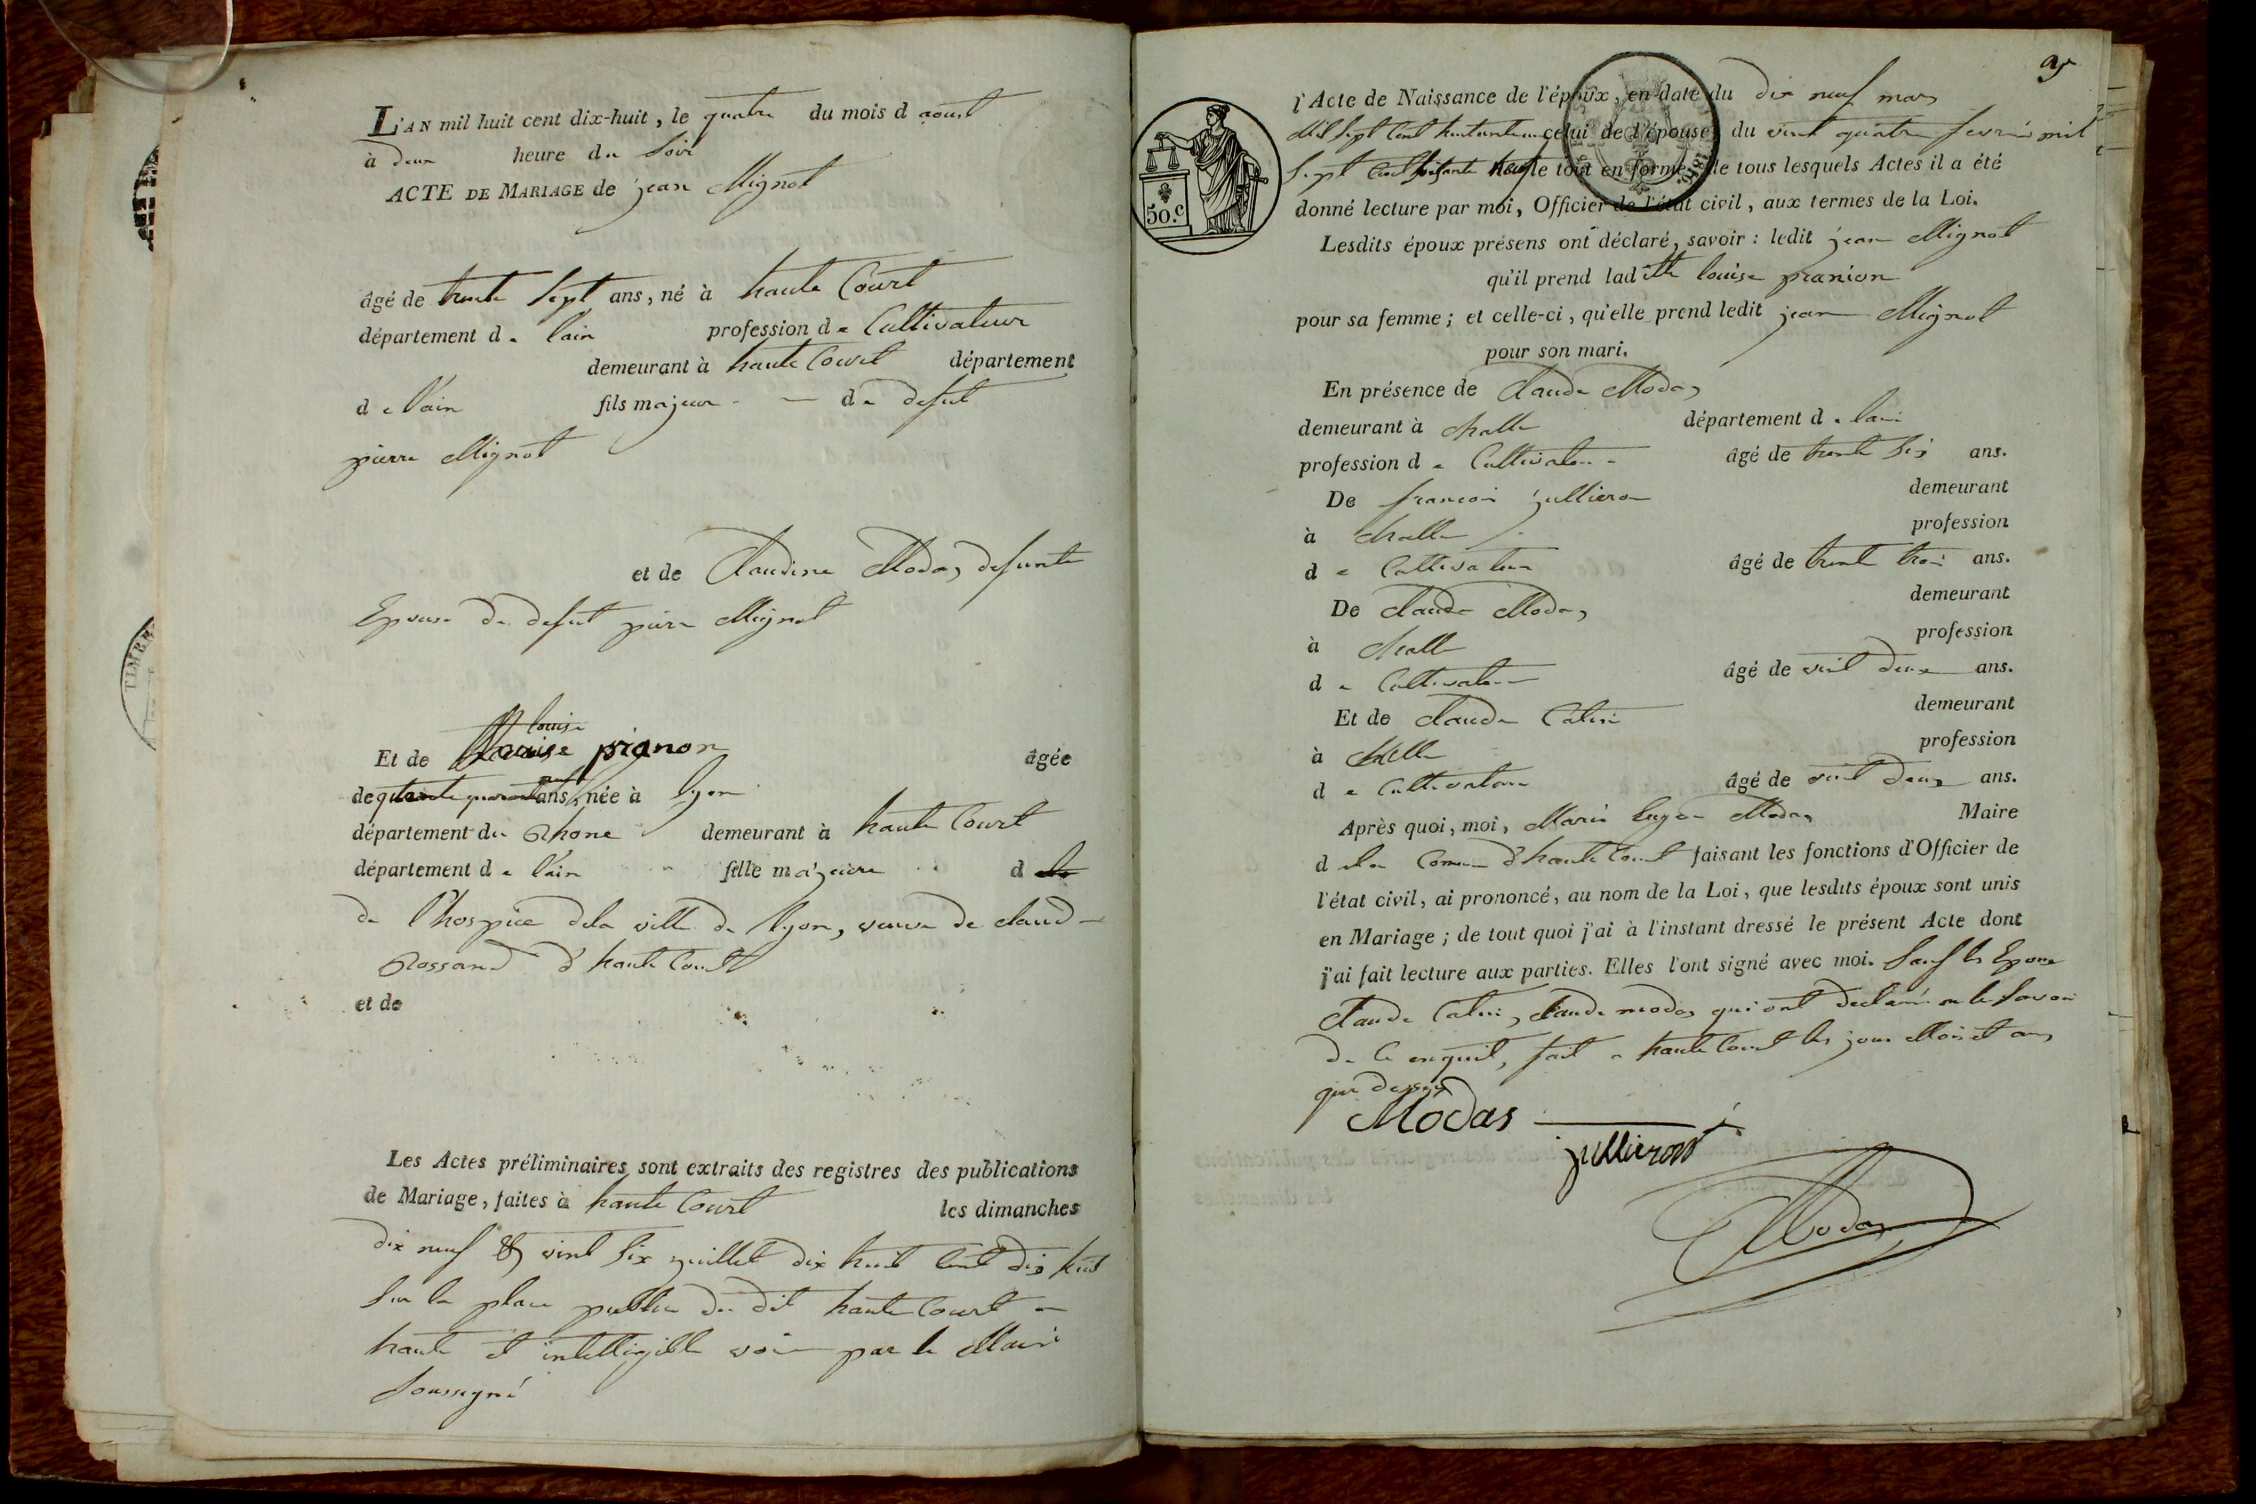 L'AN mil huit cent dix-huit, le quatre du mois d aoust
à deux heure du soir
ACTE DE MARIAGE de jean Mignot
âgé de trente sept ans, né à haute Court
département de l'ain profession de Cultivateur
demeurant à haute Court département
de l'ain fils majeur de defut
pierre Mignot
et de Claudine Modas defunte
Epouse de defut pierre Mignot
louise
Et de louise pranon âgée
de ans, née à lyon
département du Rhone demeurant à haute Court
département de l'ain fille majeure d
de l'hospice dela ville de lyon, veuve de claude
Rossand d'haute Court
et de
Les Actes préliminaires sont extraits des registres des publications
de Mariage, faites à haute Court les dimanches
dix neuf & vint six juillet dix huit Cent dix huit
sur la place public du dit haute Court a
haute et intelligible voix par le Maire
soussigné
l'Acte de Naissance de l'époux, en date du dix neuf mars
Mil sept Cent celui de l'épouse du vint quatre fevrier mil
sept Cent le tout en forme. De tous lesquels Actes il a été
donné lecture par moi, Officier de l'état civil, aux termes de la Loi.
50.c
Lesdits époux présens ont déclaré, savoir : ledit jean Mignot
qu'il prend laditte louise pranion
pour sa femme ; et celle-ci, qu'elle prend ledit jean Mignot
pour son mari.
En présence de Claude Modas
demeurant à challe département de lain
profession de Cultivateur âgé de trente six ans.
De francois jullieron demeurant
à challe profession
de Cultivateur âgé de trente troi ans.
De Claude Modas demeurant
à challe profession
de Cultivateur âgé de vint deux ans.
Et de Claude Catin demeurant
à challe profession
de Cultivateur âgé de vint deux ans.
Après quoi, moi, Marie Modas Maire
dela Comune d'haute Court faisant les fonctions d'Officier de
l'état civil, ai prononcé, au nom de la Loi, que lesdits époux sont unis
en Mariage ; de tout quoi j'ai à l'instant dressé le présent Acte dont
j'ai fait lecture aux parties. Elles l'ont signé avec moi. sauf les Epoux
Claude Catin, Claude modas qui ont declaré ne le savoir
de ce enquit, fait a haute Court les jour Mois et ans
que dessus
Modas
jullieron
Modas